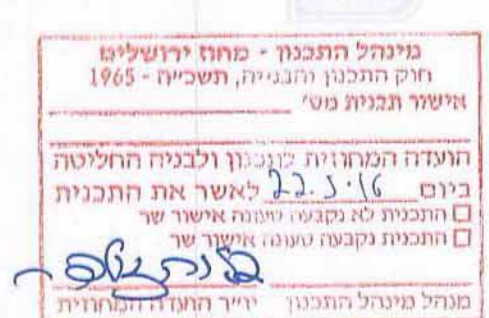 מינהל התכנון - מחוז ירושלים
חוק התכנון והבנייה, תשכ״ה - 1965
אישור תכנית מס׳
הועדה המחוזית לתכנון ולבניה החליטה
ביום 22.5.16 לאשר את התכנית
☐ התכנית לא נקבעה טעונה אישור שר
☐ התכנית נקבעה טעונה אישור שר
מנהל מינהל התכנון יו״ר הועדה המחוזית